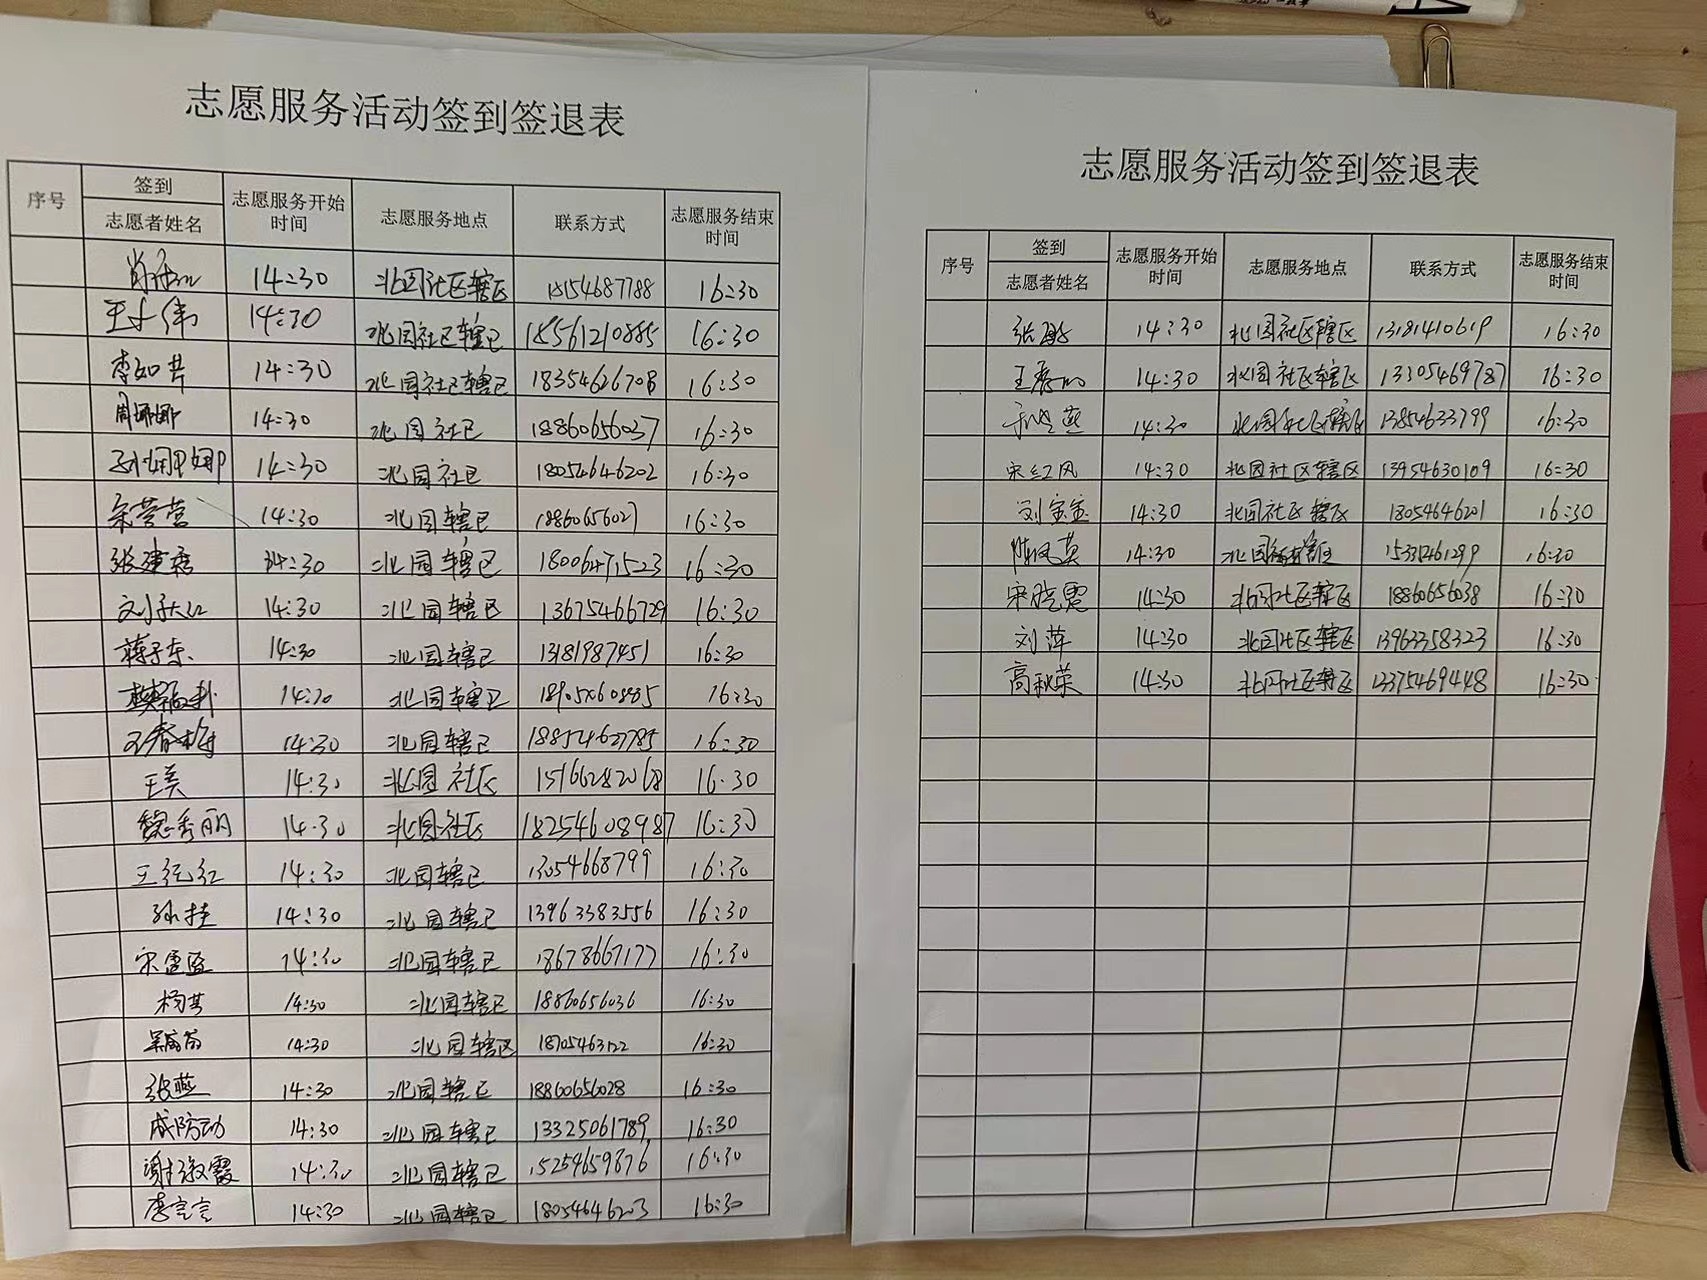 志愿服务活动签到签退表
序号 签到 志愿服务开始时间 志愿服务地点 联系方式 志愿服务结束时间
志愿者姓名
14:30 北园社区辖区 15154687788 16:30
14:30 北园社区辖区 18561210885 16:30
李如芹 14:30 北园社区辖区 18354626708 16:30
周娜娜 14:30 北园社区 18860656037 16:30
孙娜娜 14:30 北园社区 18054646202 16:30
14:30 北园辖区 18860656027 16:30
张建秀 14:30 北园辖区 18006471523 16:30
14:30 北园辖区 13675466729 16:30
蒋子东 14:30 北园辖区 13181987451 16:30
14:30 北园辖区 16:30
王春梅 14:30 北园辖区 18854627785 16:30
王美 14:30 北园社区 15166282068 16:30
魏秀丽 14:30 北园社区 18254608987 16:30
14:30 北园辖区 13054668799 16:30
孙桂 14:30 北园辖区 13963383556 16:30
14:30 北园辖区 18678667177 16:30
杨芳 14:30 北园辖区 18860656036 16:30
14:30 北园辖区 16:30
张燕 14:30 北园辖区 18860656028 16:30
成防动 14:30 北园辖区 13325061789 16:30
谢淑霞 14:30 北园辖区 15254659876 16:30
李言言 14:30 北园辖区 18054646203 16:30
志愿服务活动签到签退表
序号 签到 志愿服务开始时间 志愿服务地点 联系方式 志愿服务结束时间
志愿者姓名
14:30 北园社区辖区 13181410619 16:30
14:30 北园社区辖区 13305469787 16:30
14:30 北园社区辖区 13854633799 16:30
宋红风 14:30 北园社区辖区 13954630109 16:30
刘宝宝 14:30 北园社区辖区 18054646201 16:30
陈凤英 14:30 16:30
宋晓霞 14:30 北园社区辖区 18860656038 16:30
刘萍 14:30 北园社区辖区 13963358323 16:30
高秋荣 14:30 北园社区辖区 13375469448 16:30